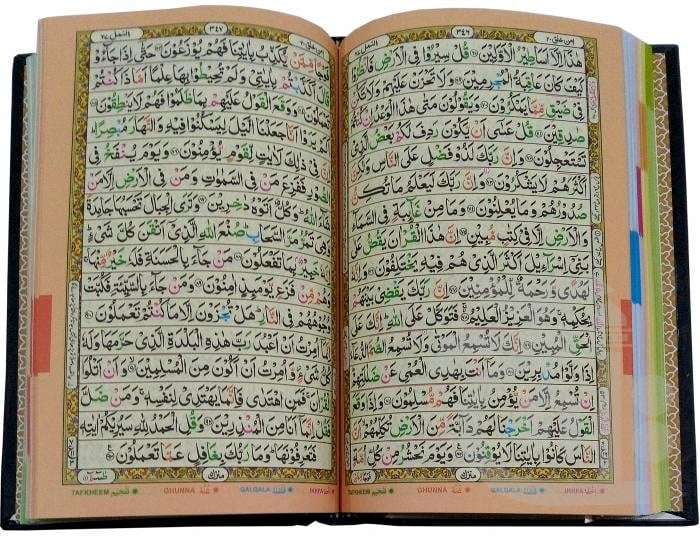 امن خلق ٢٠ ٣٤٦ النمل ٢٧
هٰذَاۤ اِلَّاۤ اَسَاطِيْرُ الْاَوَّلِيْنَ قُلْ سِيْرُوْا فِى الْاَرْضِ فَانْظُرُوْا
كَيْفَ كَانَ عَاقِبَةُ الْمُجْرِمِيْنَ وَلَا تَحْزَنْ عَلَيْهِمْ وَلَا تَكُنْ
فِيْ ضَيْقٍ مِّمَّا يَمْكُرُوْنَ وَيَقُوْلُوْنَ مَتٰى هٰذَا الْوَعْدُ اِنْ كُنْتُمْ
صٰدِقِيْنَ قُلْ عَسٰۤى اَنْ يَّكُوْنَ رَدِفَ لَكُمْ بَعْضُ الَّذِيْ
تَسْتَعْجِلُوْنَ وَاِنَّ رَبَّكَ لَذُوْ فَضْلٍ عَلَى النَّاسِ وَلٰكِنَّ
اَكْثَرَهُمْ لَا يَشْكُرُوْنَ وَاِنَّ رَبَّكَ لَيَعْلَمُ مَا تُكِنُّ
صُدُوْرُهُمْ وَمَا يُعْلِنُوْنَ وَمَا مِنْ غَآئِبَةٍ فِى السَّمَآءِ
وَالْاَرْضِ اِلَّا فِيْ كِتٰبٍ مُّبِيْنٍ اِنَّ هٰذَا الْقُرْاٰنَ يَقُصُّ عَلٰى
بَنِيْۤ اِسْرَآءِيْلَ اَكْثَرَ الَّذِيْ هُمْ فِيْهِ يَخْتَلِفُوْنَ وَاِنَّهٗ
لَهُدًى وَّرَحْمَةٌ لِّلْمُؤْمِنِيْنَ اِنَّ رَبَّكَ يَقْضِيْ بَيْنَهُمْ
بِحُكْمِهٖ وَهُوَ الْعَزِيْزُ الْعَلِيْمُ فَتَوَكَّلْ عَلَى اللّٰهِ اِنَّكَ عَلَى
الْحَقِّ الْمُبِيْنِ اِنَّكَ لَا تُسْمِعُ الْمَوْتٰى وَلَا تُسْمِعُ الصُّمَّ الدُّعَآءَ
اِذَا وَلَّوْا مُدْبِرِيْنَ وَمَاۤ اَنْتَ بِهٰدِى الْعُمْيِ عَنْ ضَلٰلَتِهِمْ
اِنْ تُسْمِعُ اِلَّا مَنْ يُّؤْمِنُ بِاٰيٰتِنَا فَهُمْ مُّسْلِمُوْنَ وَاِذَا وَقَعَ
الْقَوْلُ عَلَيْهِمْ اَخْرَجْنَا لَهُمْ دَآبَّةً مِّنَ الْاَرْضِ تُكَلِّمُهُمْ اَنَّ
النَّاسَ كَانُوْا بِاٰيٰتِنَا لَا يُوْقِنُوْنَ وَيَوْمَ نَحْشُرُ مِنْ كُلِّ اُمَّةٍ
منزل
TAFKHEEM تفخيم GHUNNA غنة QALQALA قلقلة IKHFA اخفا
امن خلق ٢٠ ٣٤٧ النمل ٢٧
فَوْجًا مِّمَّنْ يُّكَذِّبُ بِاٰيٰتِنَا فَهُمْ يُوْزَعُوْنَ حَتّٰىۤ اِذَا جَآءُوْ
قَالَ اَكَذَّبْتُمْ بِاٰيٰتِيْ وَلَمْ تُحِيْطُوْا بِهَا عِلْمًا اَمَّاذَا كُنْتُمْ
تَعْمَلُوْنَ وَوَقَعَ الْقَوْلُ عَلَيْهِمْ بِمَا ظَلَمُوْا فَهُمْ لَا يَنْطِقُوْنَ
اَلَمْ يَرَوْا اَنَّا جَعَلْنَا الَّيْلَ لِيَسْكُنُوْا فِيْهِ وَالنَّهَارَ مُبْصِرًا
اِنَّ فِيْ ذٰلِكَ لَاٰيٰتٍ لِّقَوْمٍ يُّؤْمِنُوْنَ وَيَوْمَ يُنْفَخُ فِى
الصُّوْرِ فَفَزِعَ مَنْ فِى السَّمٰوٰتِ وَمَنْ فِى الْاَرْضِ اِلَّا مَنْ
شَآءَ اللّٰهُ وَكُلٌّ اَتَوْهُ دٰخِرِيْنَ وَتَرَى الْجِبَالَ تَحْسَبُهَا جَامِدَةً
وَّهِيَ تَمُرُّ مَرَّ السَّحَابِ صُنْعَ اللّٰهِ الَّذِيْۤ اَتْقَنَ كُلَّ شَيْءٍ
اِنَّهٗ خَبِيْرٌۢ بِمَا تَفْعَلُوْنَ مَنْ جَآءَ بِالْحَسَنَةِ فَلَهٗ خَيْرٌ مِّنْهَا
وَهُمْ مِّنْ فَزَعٍ يَّوْمَئِذٍ اٰمِنُوْنَ وَمَنْ جَآءَ بِالسَّيِّئَةِ فَكُبَّتْ
وُجُوْهُهُمْ فِى النَّارِ هَلْ تُجْزَوْنَ اِلَّا مَا كُنْتُمْ تَعْمَلُوْنَ
اِنَّمَاۤ اُمِرْتُ اَنْ اَعْبُدَ رَبَّ هٰذِهِ الْبَلْدَةِ الَّذِيْ حَرَّمَهَا وَلَهٗ
كُلُّ شَيْءٍ وَّاُمِرْتُ اَنْ اَكُوْنَ مِنَ الْمُسْلِمِيْنَ وَاَنْ اَتْلُوَا
الْقُرْاٰنَ فَمَنِ اهْتَدٰى فَاِنَّمَا يَهْتَدِيْ لِنَفْسِهٖ وَمَنْ ضَلَّ
فَقُلْ اِنَّمَاۤ اَنَا مِنَ الْمُنْذِرِيْنَ وَقُلِ الْحَمْدُ لِلّٰهِ سَيُرِيْكُمْ اٰيٰتِهٖ
فَتَعْرِفُوْنَهَا وَمَا رَبُّكَ بِغَافِلٍ عَمَّا تَعْمَلُوْنَ
منزل
TAFKHEEM تفخيم GHUNNA غنة QALQALA قلقلة IKHFA اخفا